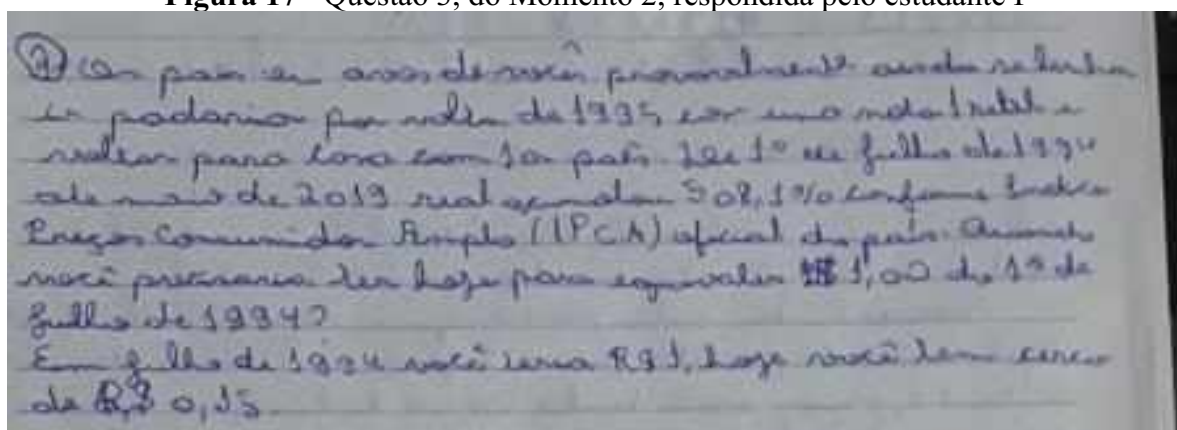 Figura 17 - Questão 3, do Momento 2, respondida pelo estudante I
pais avós de vocês provavelmente ainda se lembra
padaria por volta de 1995, com uma nota 1 real e
voltar para casa com 10 pais. De 1º de julho de 1994
ate maio de 2019 real 508,1% conforme
Preços Consumidor Amplo (IPCA) oficial do país. Quanto
você precisaria ter hoje para equivaler R$ 1,00 de 1º de
julho de 1994?
Em julho de 1994 você teria R$ 1, hoje você tem cerca
de R$ 0,15